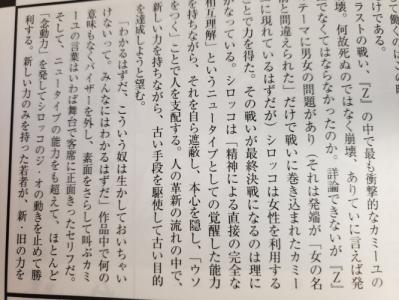 て働くのはこの時
けである。
ラストの戦い、『Z』の中で最も衝撃的なカミーユの
壊。何故死ぬのではなく崩壊、ありていに言えば発
でなくてはならなかったのか。詳論できないが『Z』
テーマに男女の問題があり（それは発端が「女の名
前と間違えられた」だけで戦いに巻き込まれたカミー
に現れているはずだが）シロッコは女性を利用する
ことで力を得た。その戦いが最終決戦になるのは理に
かなっている。シロッコは「精神による直接の完全な
相互理解」というニュータイプとしての覚醒した能力
を持ちながら、それを自ら遮蔽し、本心を隠し、「ウソ
をつく」ことで人を支配する。人の革新の流れの中で、
新しい力を持ちながら、古い手段を駆使して古い目的
を達成しようと望む。
「わかるはずだ、こういう奴は生かしておいちゃい
けないって。みんなにはわかるはずだ」作品中で何の
意味もなくバイザーを外し、素面をさらして叫ぶカミ
ーユの言葉はいわば舞台で客席に正面きったセリフだ。
そして、ニュータイプの能力をも超えて、ほとんど
「念動力」を発してシロッコのジ・オの動きを止めて勝
利する。新しい力のみを持った若者が、新・旧の力を